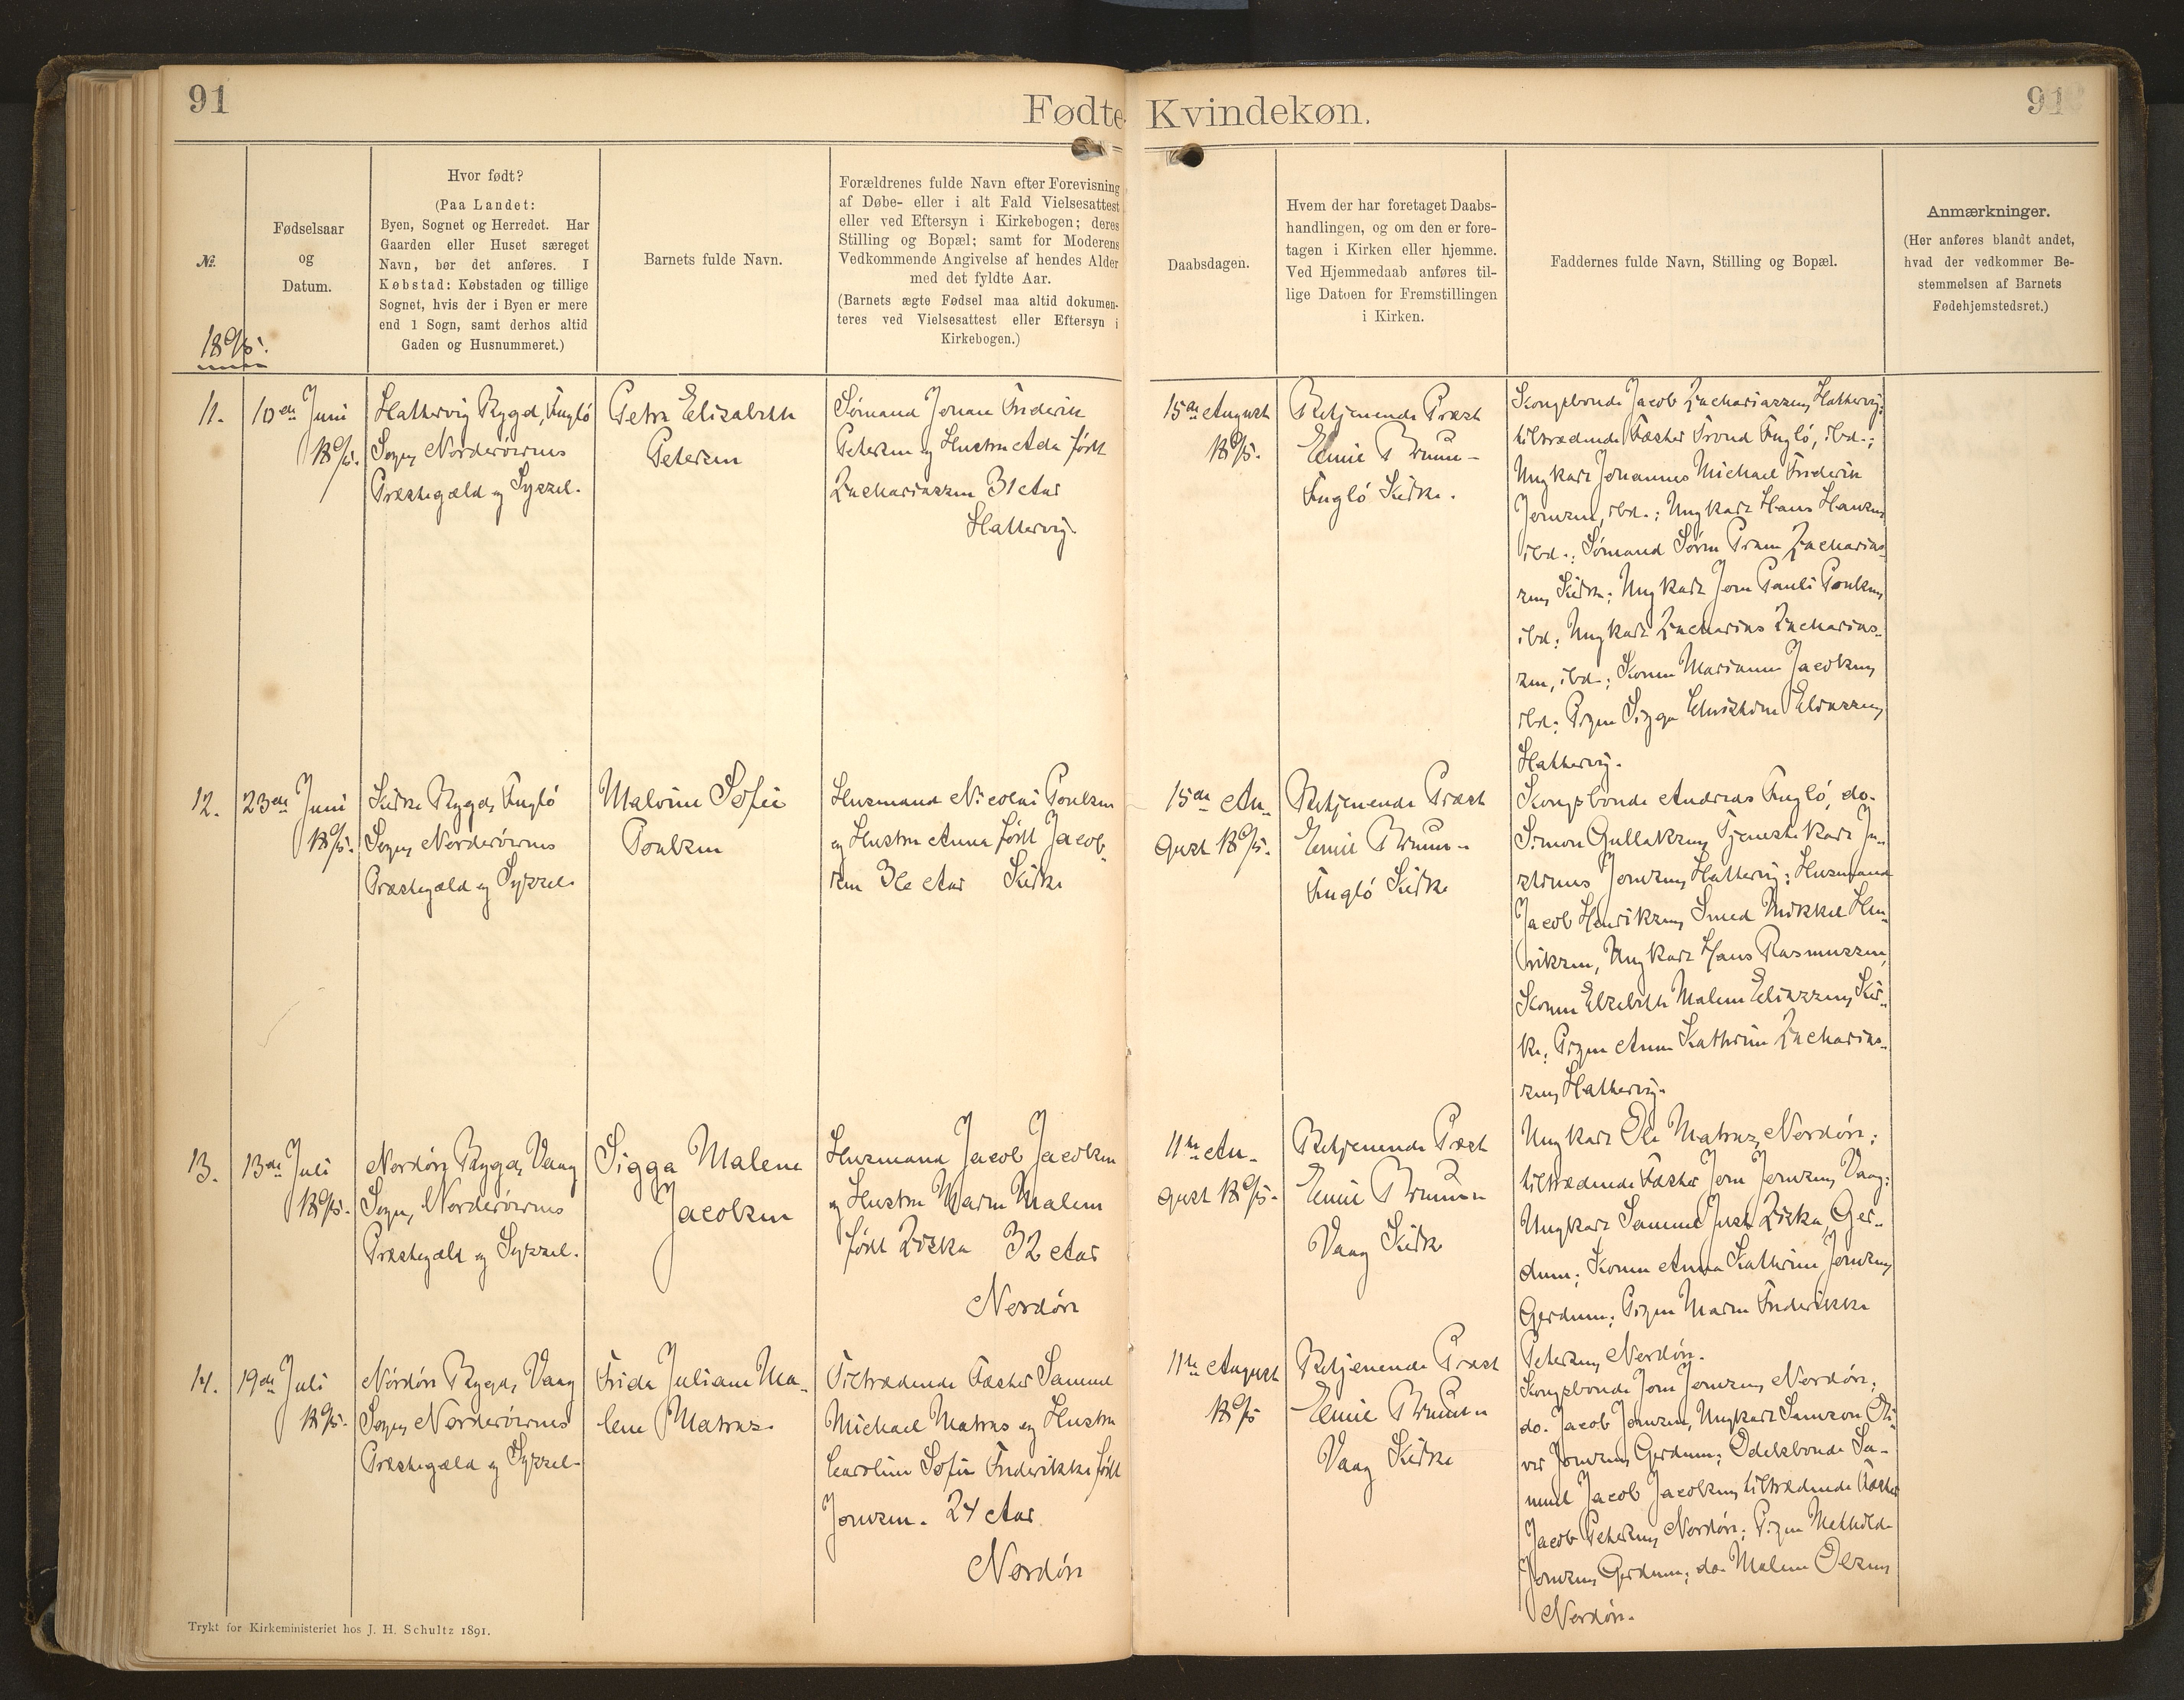 91
Fødte
Kvindekøn.
91
№
Fødselsaar
og
Datum.
Hvor født?
(Paa Landet:
Byen, Sognet og Herredet. Har
Gaarden eller Huset særeget
Navn, bør det anføres. I
Købstad: Købstaden og tillige
Sognet, hvis der i Byen er mere
end 1 Sogn, samt derhos altid
Gaden og Husnummeret.)
Barnets fulde Navn.
Forældrenes fulde Navn efter Forevisning
af Døbe- eller i alt Fald Vielsesattest
eller ved Eftersyn i Kirkebogen; deres
Stilling og Bopæl; samt for Moderens
Vedkommende Angivelse af hendes Alder
med det fyldte Aar.
(Barnets ægte Fødsel maa altid dokumen-
teres ved Vielsesattest eller Eftersyn i
Kirkebogen.)
Daabsdagen.
Hvem der har foretaget Daabs-
handlingen, og om den er fore-
tagen i Kirken eller hjemme.
Ved Hjemmedaab anføres til-
lige Datoen for Fremstillingen
i Kirken.
Faddernes fulde Navn, Stilling og Bopæl.
Anmærkninger.
(Her anføres blandt andet,
hvad der vedkommer Be-
stemmelsen af Barnets
Fødehjemstedsret.)
1895.
11.
10de Juni
1895.
Hattervig Bygd, Fuglö
Sogn, Norderöernes
Præstegæld og Syssel.
Petra Elisabeth
Petersen
Sömand Jonas Friderik
Petersen og Hustru Ada född
Zachariassen 31 Aar
Hattervig.
15de August
1895.
Betjenende Præst
Emil Bruun -
Fuglö Kirke.
Kongsbonde Jacob Zachariassen, Hattervig;
tiltrædende Fæster Trond Fuglö, ibd.;
Ungkarl Johannes Michael Friderik
Joensen, ibd.; Ungkarl Hans Hansen,
ibd.; Sömand Sören Pram Zacharias-
sen, Kirke; Ungkarl Joen Pauli Poulsen,
ibd; Ungkarl Zacharias Zacharias-
sen, ibd.; Konen Marianne Jacobsen,
ibd; Pigen Sigga Christine Eliassen,
Hattervig.
12.
23de Juni
1895.
Kirke Bygd, Fuglö
Sogn, Norderöernes
Præstegæld og Syssel.
Malvine Sofie
Poulsen
Husmand Nicolai Poulsen
og Hustru Anna född Jacob-
sen 36 Aar Kirke
15de Au-
gust 1895.
Betjenende Præst
Emil Bruun -
Fuglö Kirke
Kongsbonde Andreas Fuglö, do.
Simon Gullaksen, Tjenestekarl Ju-
stinus Joensen, Hattervig; Husmand
Jacob Henriksen, Smed Mikkel Hen-
riksen, Ungkarl Hans Rasmussen,
Konen Elsebeth Malene Eliassen, Kir-
ke; Pigen Anna Kathrine Zacharias-
sen, Hattervig.
13.
13de Juli
1895.
Nordöre Bygd, Vaag
Sogn, Norderöernes
Præstegæld og Syssel.
Sigga Malene
Jacobsen
Husmand Jacob Jacobsen
og Hustru Maren Malene
född Ziska 32 Aar
Nordöre
11te Au-
gust 1895.
Betjenende Præst
Emil Bruun -
Vaag Kirke
Ungkarl Ole Matras, Nordöre;
tiltrædende Fæster Joen Joensen, Vaag;
Ungkarl Samuel Just Ziska, Ger-
dum; Konen Anna Kathrine Joensen,
Gerdum; Pigen Maren Friderikke
Petersen, Nordöre.
14.
19de Juli
1895.
Nordöre Bygd, Vaag
Sogn, Norderöernes
Præstegæld og Syssel
Frida Juliane Ma-
lene Matras.
Tiltrædende Fæster Samuel
Michael Matras og Hustru
Caroline Sofie Friderikke född
Joensen. 24 Aar
Nordöre
11te August
1895
Betjenende Præst
Emil Bruun -
Vaag Kirke
Kongsbonde Joen Joensen, Nordöre;
do. Jacob Joensen, Ungkarl Samson Oli-
ver Joensen, Gerdum; Odelsbonde Sa-
muel Jacob Jacobsen, tiltrædende Fæster
Jacob Petersen, Nordöre; Pigen Mathilde
Joensen, Gerdum; do. Malene Olsen,
Nordöre.
Trykt for Kirkeministeriet hos J. H. Schultz 1891.